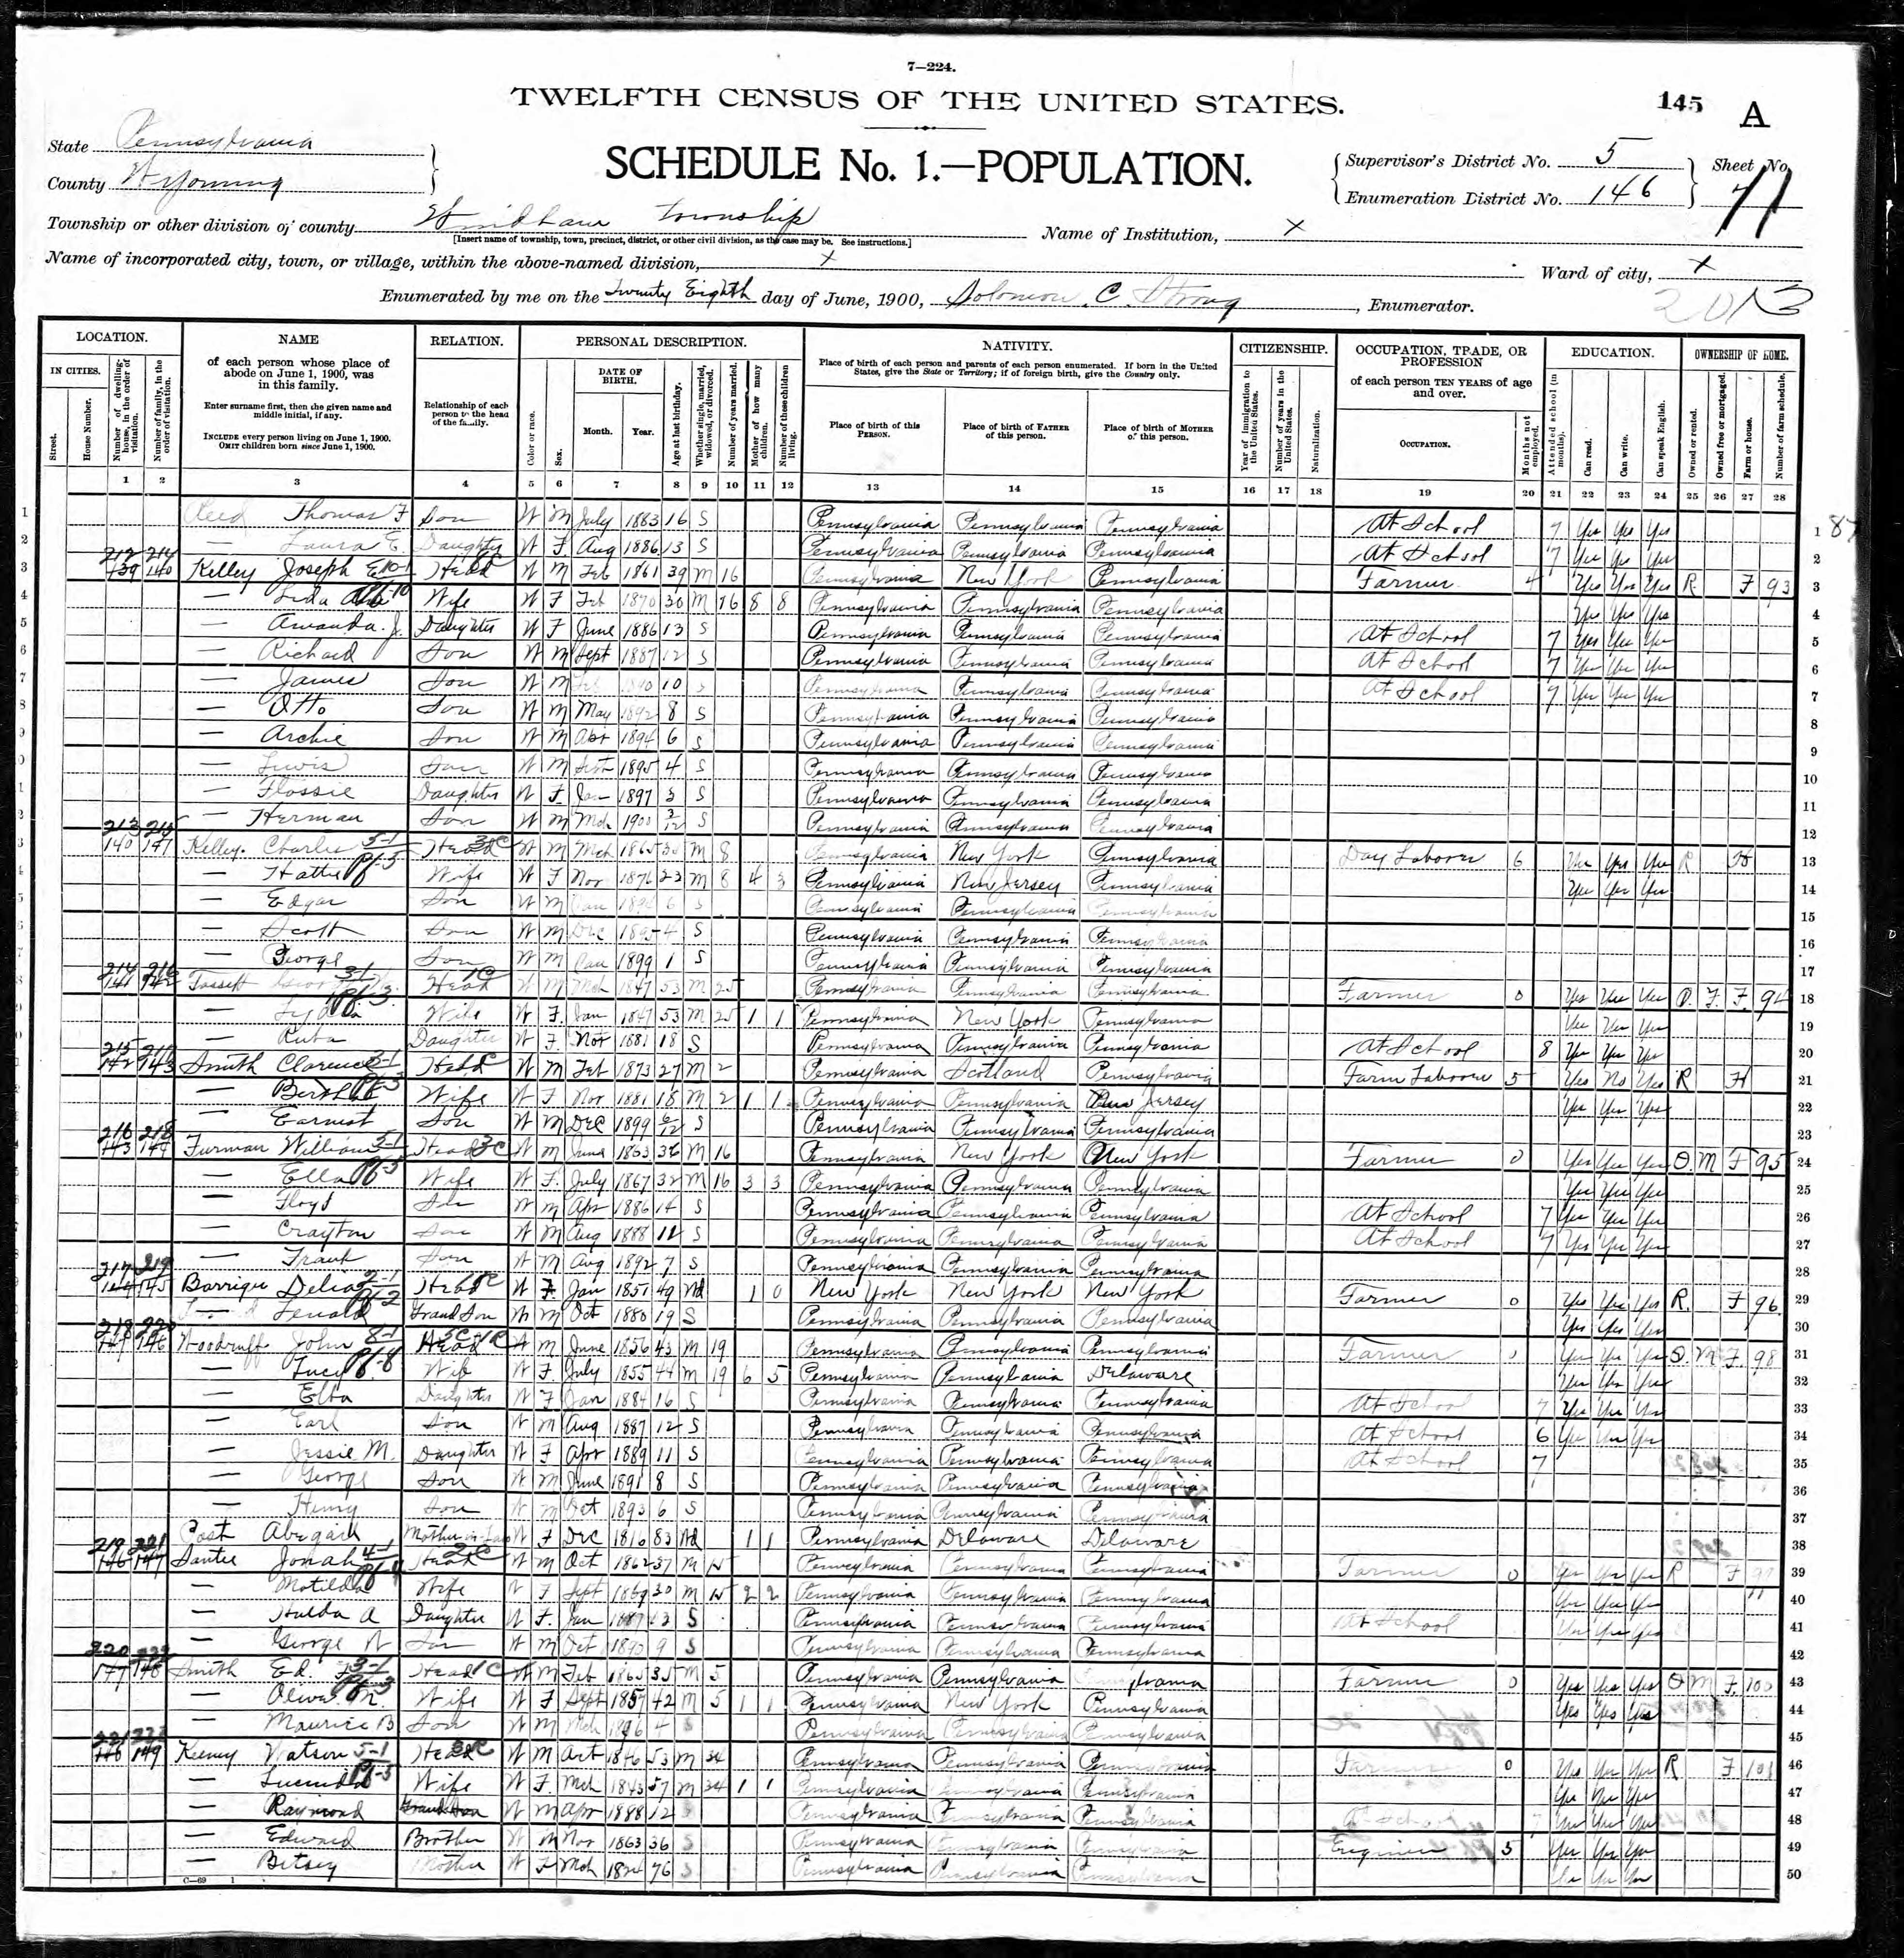 7—224.
TWELFTH CENSUS OF THE UNITED STATES.
145 A
State Pennsylvania
County Wyoming
SCHEDULE No. 1.—POPULATION.
Supervisor's District No. 5
Enumeration District No. 146
Sheet No. 11
Township or other division of county Windham Township
[Insert name of township, town, precinct, district, or other civil division, as the case may be. See instructions.]
Name of Institution, X
Name of incorporated city, town, or village, within the above-named division, X
Ward of city, X
Enumerated by me on the Twenty Eighth day of June, 1900, Solomon C. Strong, Enumerator.
LOCATION. NAME RELATION. PERSONAL DESCRIPTION. NATIVITY. CITIZENSHIP. OCCUPATION, TRADE, OR PROFESSION EDUCATION. OWNERSHIP OF HOME.
IN CITIES. Street. House Number. Number of dwelling-house, in the order of visitation. Number of family, in the order of visitation.
of each person whose place of abode on June 1, 1900, was in this family.
Enter surname first, then the given name and middle initial, if any.
INCLUDE every person living on June 1, 1900. OMIT children born since June 1, 1900.
Relationship of each person to the head of the family.
Color or race. Sex. DATE OF BIRTH. Month. Year. Age at last birthday. Whether single, married, widowed, or divorced. Number of years married. Mother of how many children. Number of these children living.
Place of birth of each person and parents of each person enumerated. If born in the United States, give the State or Territory; if of foreign birth, give the Country only.
Place of birth of this PERSON. Place of birth of FATHER of this person. Place of birth of MOTHER of this person.
Year of immigration to the United States. Number of years in the United States. Naturalization.
of each person TEN YEARS of age and over. OCCUPATION. Months not employed.
Attended school (in months). Can read. Can write. Can speak English. Owned or rented. Owned free or mortgaged. Farm or house. Number of farm schedule.
1 2 3 4 5 6 7 8 9 10 11 12 13 14 15 16 17 18 19 20 21 22 23 24 25 26 27 28
1 Reed Thomas F Son W M July 1883 16 S Pennsylvania Pennsylvania Pennsylvania At School 7 Yes Yes Yes
2 — Laura E. Daughter W F Aug 1886 13 S Pennsylvania Pennsylvania Pennsylvania At School 7 Yes Yes Yes
3 212 214 Kelley Joseph E Head W M Feb 1861 39 M 16 Pennsylvania New York Pennsylvania Farmer 4 Yes Yes Yes R F 93
4 — Wife W F Feb 1870 30 M 16 8 8 Pennsylvania Pennsylvania Pennsylvania Yes Yes Yes
5 — Amanda J. Daughter W F June 1886 13 S Pennsylvania Pennsylvania Pennsylvania At School 7 Yes Yes Yes
6 — Richard Son W M Sept 1887 12 S Pennsylvania Pennsylvania Pennsylvania At School 7 Yes Yes Yes
7 — James Son W M Feb 1890 10 S Pennsylvania Pennsylvania Pennsylvania At School 7 Yes Yes Yes
8 — Otto Son W M May 1892 8 S Pennsylvania Pennsylvania Pennsylvania
9 — Archie Son W M Apr 1894 6 S Pennsylvania Pennsylvania Pennsylvania
10 — Lewis Son W M Sept 1895 4 S Pennsylvania Pennsylvania Pennsylvania
11 — Flossie Daughter W F Jan 1897 3 S Pennsylvania Pennsylvania Pennsylvania
12 — Herman Son W M Mch 1900 3/12 S Pennsylvania Pennsylvania Pennsylvania
13 213 215 Kelley Charles Head W M Mch 1865 35 M 8 Pennsylvania New York Pennsylvania Day Laborer 6 Yes Yes Yes R H
14 — Hattie Wife W F Nov 1876 23 M 8 4 3 Pennsylvania New Jersey Pennsylvania Yes Yes Yes
15 — Edgar Son W M Jan 1894 6 S Pennsylvania Pennsylvania Pennsylvania
16 — Scott Son W M Dec 1895 4 S Pennsylvania Pennsylvania Pennsylvania
17 — George Son W M Jan 1899 1 S Pennsylvania Pennsylvania Pennsylvania
18 214 216 Fassett Head W M Mch 1847 53 M 25 Pennsylvania Pennsylvania Pennsylvania Farmer 0 Yes Yes Yes O. F. F. 94
19 — Wife W F Jan 1847 53 M 25 1 1 Pennsylvania New York Pennsylvania Yes Yes Yes
20 — Daughter W F Nov 1881 18 S Pennsylvania Pennsylvania Pennsylvania At School 8 Yes Yes Yes
21 215 217 Smith Clarence Head W M Feb 1873 27 M 2 Pennsylvania Scotland Pennsylvania Farm Laborer 5 Yes No Yes R H
22 — Bertha Wife W F Nov 1881 18 M 2 1 1 Pennsylvania Pennsylvania New Jersey Yes Yes Yes
23 — Earnest Son W M Dec 1899 6/12 S Pennsylvania Pennsylvania Pennsylvania
24 216 218 Furman William Head W M June 1863 36 M 16 Pennsylvania New York New York Farmer 0 Yes Yes Yes O. M F 95
25 — Ella Wife W F. July 1867 32 M 16 3 3 Pennsylvania Pennsylvania Pennsylvania Yes Yes Yes
26 — Floyd Son W M Apr 1886 14 S Pennsylvania Pennsylvania Pennsylvania At School 7 Yes Yes Yes
27 — Crayton Son W M Aug 1888 11 S Pennsylvania Pennsylvania Pennsylvania At School 7 Yes Yes Yes
28 — Frank Son W M Aug 1892 7 S Pennsylvania Pennsylvania Pennsylvania
29 217 219 Barrigar Delia Head W F Jan 1851 49 Wd 1 0 New York New York New York Farmer 0 Yes Yes Yes R. F 96
30 — Grand Son W M Oct 1880 19 S Pennsylvania Pennsylvania Pennsylvania Yes Yes Yes
31 218 220 Woodruff John Head W M June 1856 43 M 19 Pennsylvania Pennsylvania Pennsylvania Farmer 0 Yes Yes Yes O. M F. 98
32 — Lucy Wife W F. July 1855 44 M 19 6 5 Pennsylvania Pennsylvania Delaware Yes Yes Yes
33 — Daughter W F Jan 1884 16 S Pennsylvania Pennsylvania Pennsylvania At School 7 Yes Yes Yes
34 — Earl Son W M Aug 1887 12 S Pennsylvania Pennsylvania Pennsylvania At School 6 Yes Yes Yes
35 — Jessie M. Daughter W F Apr 1889 11 S Pennsylvania Pennsylvania Pennsylvania At School 7
36 — George Son W M June 1891 8 S Pennsylvania Pennsylvania Pennsylvania
37 — Henry Son W M Oct 1893 6 S Pennsylvania Pennsylvania Pennsylvania
38 Post Abegail Mother-in-Law W F Dec 1816 83 Wd 1 1 Pennsylvania Delaware Delaware
39 219 221 Santee Jonah Head W M Oct 1862 37 M 15 Pennsylvania Pennsylvania Pennsylvania Farmer 0 Yes Yes Yes R F 99
40 — Matilda Wife W F Sept 1869 30 M 15 2 2 Pennsylvania Pennsylvania Pennsylvania Yes Yes Yes
41 — Hulda A Daughter W F. Jan 1887 13 S Pennsylvania Pennsylvania Pennsylvania At School Yes Yes Yes
42 — George W Son W M Oct 1890 9 S Pennsylvania Pennsylvania Pennsylvania
43 220 222 Smith Ed. Head W M Feb 1865 35 M 5 Pennsylvania Pennsylvania Pennsylvania Farmer 0 Yes Yes Yes O M F. 100
44 — Olive Wife W F Sept 1857 42 M 5 1 1 Pennsylvania New York Pennsylvania Yes Yes Yes
45 — Maurice B Son W M Mch 1896 4 S Pennsylvania Pennsylvania Pennsylvania
46 221 223 Keeney Watson Head W M Oct 1846 53 M 34 Pennsylvania Pennsylvania Pennsylvania Farmer 0 Yes Yes Yes R F 101
47 — Lucinda Wife W F. Mch 1843 57 M 34 1 1 Pennsylvania Pennsylvania Pennsylvania Yes Yes Yes
48 — Raymond Grand Son W M Apr 1888 12 S Pennsylvania Pennsylvania Pennsylvania At School 7 Yes Yes Yes
49 — Edward Brother W M Nov 1863 36 S Pennsylvania Pennsylvania Pennsylvania Engineer 5 Yes Yes Yes
50 — Betsey Mother W F Mch 1824 76 S Pennsylvania Pennsylvania Pennsylvania Yes Yes Yes
C—69 1